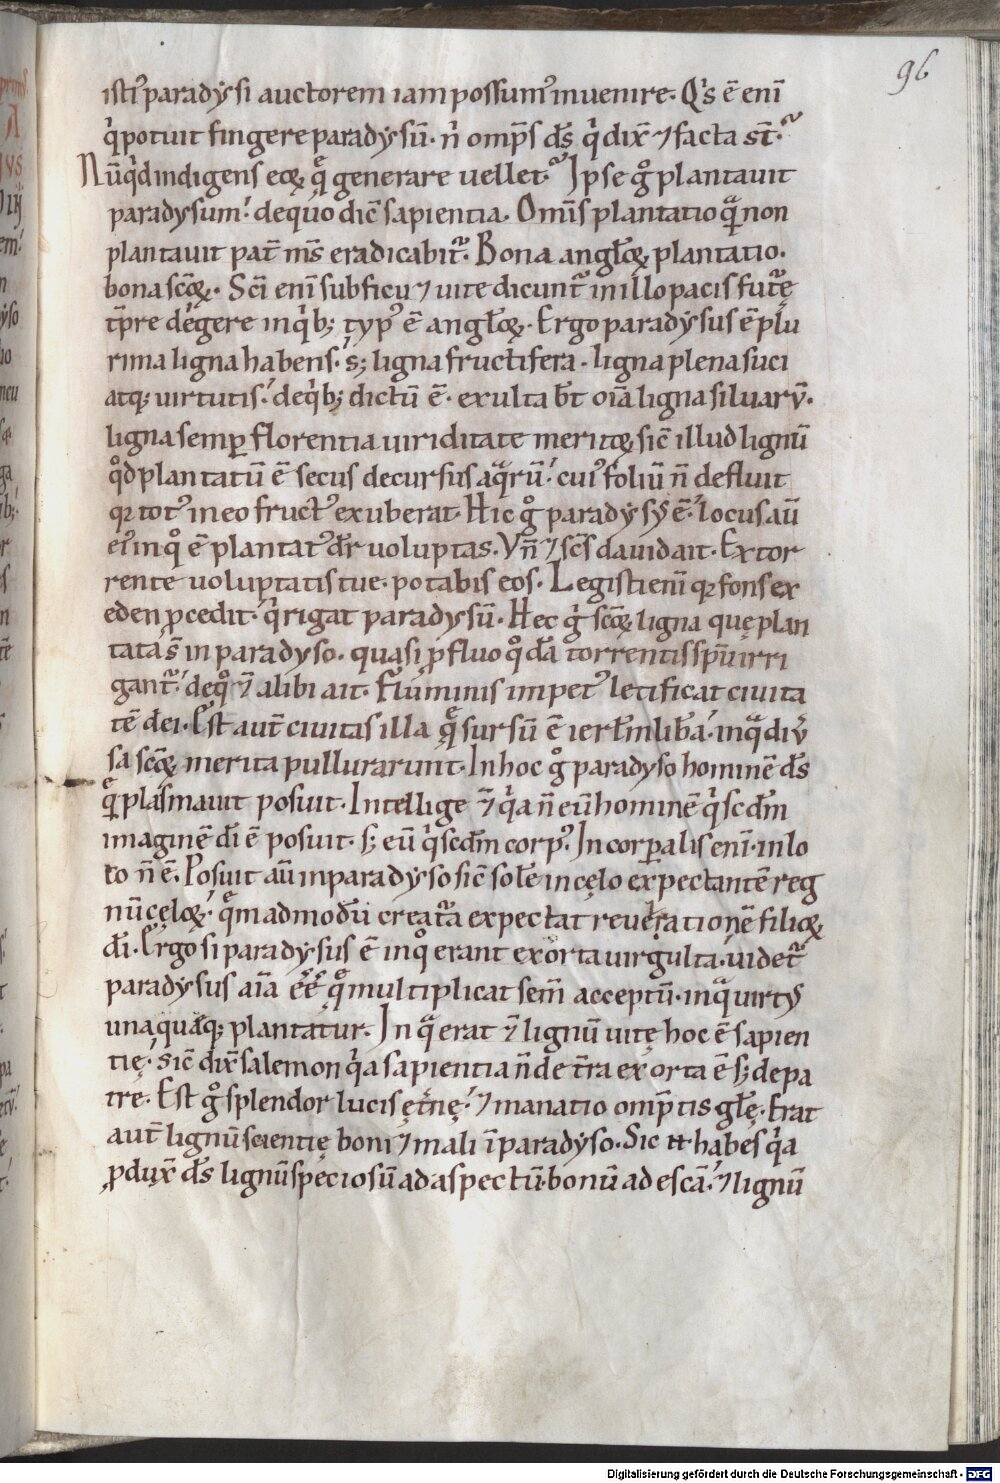 96
isti᷒ paradysi auctorem iam possum᷒ inuenire. Qͥs ē eni̅
qͥ potuit fingere paradysū. n̄ omp̄s dȩ̄s qͥ dix̄ ⁊ facta st̄.
Nūqͥd indigens eoꝝ q̄ generare uellet. Ipse gͦ plantauit
paradysum. de quo dic̄ sapientia. Om̄is plantatio qͣ̄ non
plantauit pat̄ m̄s eradicabit᷑. Bona anglꝝ plantatio.
bona sc̄oꝝ. Sc̄i eni̅ sub ficu ⁊ uite dicunt᷑ in illo pacis fut᷑ę
tp̄re degere in qͥbꝫ typ᷒ ē anglꝝ. Ergo paradysus ē plu
rima ligna habens. sꝫ ligna fructifera. ligna plena suci
atqꝫ uirtutis. de qͥbꝫ dictū ē. exultab̄t oīa ligna siluarū.
ligna semꝑ florentia uiriditate meritoꝝ, sic̄ illud lignū
qͦd plantatū ē secus decursus aqͣrū. cui᷒ foliū n̄ defluit
qꝛ tot᷒ in eo fruct᷒ exuberat. Hic gͦ paradys᷒ ē. locus aū
ei᷒ in qͦ ē plantat᷒ dr̄ uoluptas. Vn̄ ⁊ sc̄s dauid ait. Ex tor
rente uoluptatis tuę potabis eos. Legisti eni̅ qꝛ fons ex
eden ꝓcedit. qͥ rigat paradysū. Hec gͥ sc̄oꝝ ligna que plan
tata s̄ in paradyso. quasi ꝓfluo qͦdā torrentis sp̄u irri
gant᷑. de qͦ ⁊̄ alibi ait. Fluminis impet᷒ letificat ciuita
tē dei. Est aut̄ ciuitas illa q̨ͣ sursū ē ierl̄m lib̄a. in qͣ diu̅
sa sc̄oꝝ merita pullurarunt. In hoc gͦ paradyso hominē dȩ̄s
qͣ̄ plasmauit posuit. Intellige ⁊̄ qͥa n̄ eū hominē qͥ scd̄m
imaginē di̅ ē posuit. sꝫ eū qͥ scd̄m corp᷒. Incorꝑalis eni̅. in lo
co n̄ ē. Posuit aū in paradyso sic̄ solē in cęlo expectantē reg
nū cęloꝝ. qͣ̄madmodū creat᷑a expectat reuerationē filioꝝ
di̅. Ergo si paradysus ē in qͦ erant exorta uirgulta. uidet᷑
paradysus aīa ēē q̨ͣ multiplicat sem̄ acceptū. in qͣ uirt᷒
unaquąqꝫ plantatur. In qͣ erat ⁊̄ lignū uitę hoc ē sapien
tię. sic̄ dix̄ salemon qͥa sapientia n̄ de t̄ra exorta ē sꝫ de pa
tre. Est gͦ splendor lucis ęt̄nę. ⁊ manatio omp̄tis glę. Erat
aut̄ lignū scientię boni ⁊ mali ī paradyso. Sic habes qͥa
ꝓdux̄ dȩ̄s lignū speciosū ad aspectū. bonū ad escā. ⁊ lignū
Digitalisierung gefördert durch die Deutsche Forschungsgemeinschaft - DFG